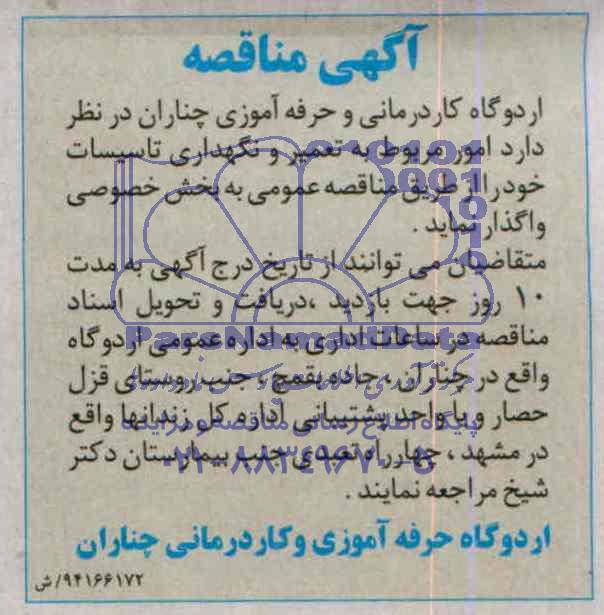 آگهی مناقصه
اردوگاه کاردرمانی و حرفه آموزی چناران در نظر
دارد امور مربوط به تعمیر و نگهداری تاسیسات
خود را از طریق مناقصه عمومی به بخش خصوصی
واگذار نماید .
متقاضیان می توانند از تاریخ درج آگهی به مدت
۱۰ روز جهت بازدید ،دریافت و تحویل اسناد
مناقصه در ساعات اداری به اداره عمومی اردوگاه
واقع در چناران ، جاده بقمچ ، جنب روستای قزل
حصار و یا واحد پشتیبانی اداره کل زندانها واقع
در مشهد ، چهارراه تعبدی جنب بیمارستان دکتر
شیخ مراجعه نمایند .
اردوگاه حرفه آموزی وکاردرمانی چناران
۹۴۱۶۶۱۷۲/ش
ParsNamadData
پایگاه اطلاع رسانی مناقصه و مزایده
۰۲۱-۸۸۳۴۹۶۷۰-۵